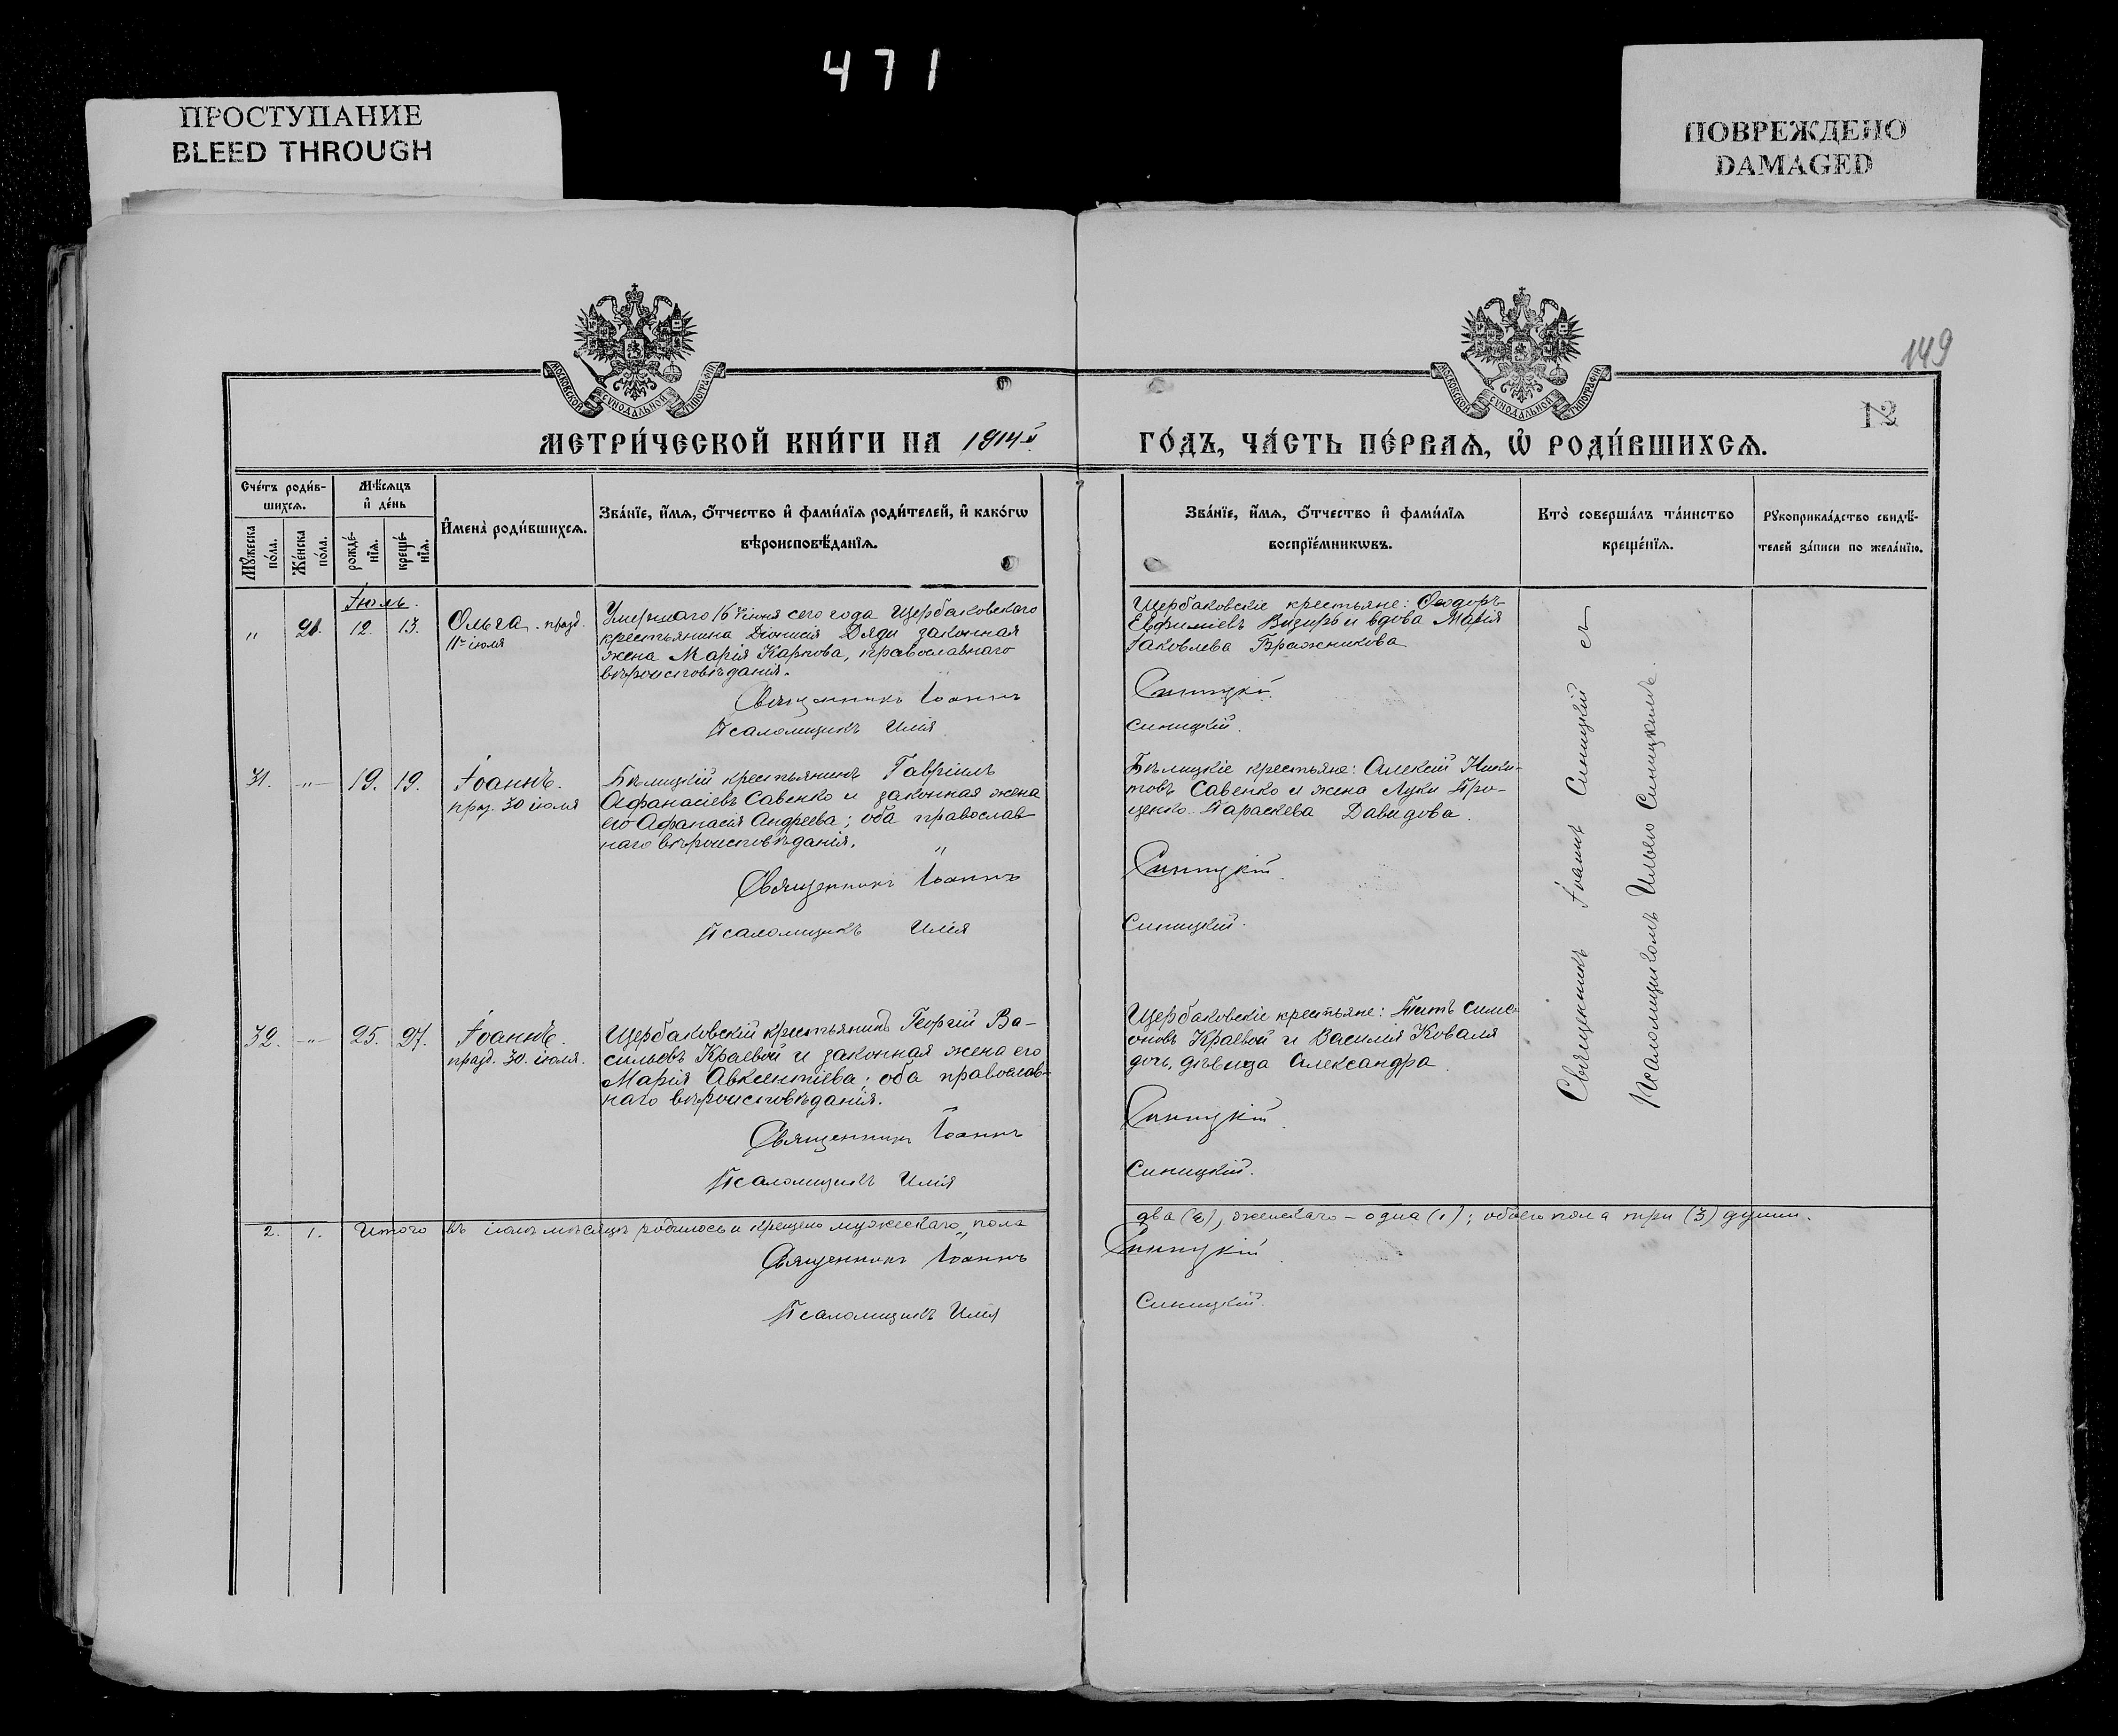 471
ПРОСТУПАНИЕ
BLEED THROUGH
ПОВРЕЖДЕНО
DAMAGED
149
12
МОСКОВСКОЙ СѴНОДАЛЬНОЙ ТИПОГРАФІИ
МОСКОВСКОЙ СѴНОДАЛЬНОЙ ТИПОГРАФІИ
МЕТРИ́ЧЕСКОЙ КНИ́ГИ НА 1914й
ГО́ДЪ, ЧА́СТЬ ПЕ́РВАѦ, Ѡ РОДИ́ВШИХСѦ.
Сче́тъ роди́в-
шихсѧ.
Мꙋ́жеска по́ла.
Же́нска по́ла.
Мѣ́сѧцъ
и де́нь
рожде́-нїѧ.
креще́-нїѧ.
И҆мена̀ роди́вшихсѧ.
Зва́нїе, и҆́мѧ, ѻ҆́тчество и҆ фами́лїѧ роди́телей, и҆ како́гѡ
вѣроисповѣ́данїѧ.
Зва́нїе, и҆́мѧ, ѻ҆́тчество и҆ фами́лїѧ
воспрїе́мникѡвъ.
Кто̀ соверша́лъ та́инство
креще́нїѧ.
Рꙋкоприкла́дство свидѣ́-
телей за́писи по жела́нїю.
Іюль.
" 21. 12. 13. Ольга. празд.
11го іюля
Умершаго 16го іюня сего года Щербаковскаго
крестьянина Діонисія Дяди законная
жена Марія Карпова, православнаго
вѣроисповѣданія.
Священникъ Іоаннъ
Псаломщикъ Илія
Щербаковскіе крестьяне: Ѳеодоръ
Евфиміевъ Визиръ и вдова Марія
Іаковлева Бражникова
Синицкій.
Синицкій.
31. -"- 19. 19. Іоаннъ.
праз. 30 іюля
Бѣлицкій крестьянинъ Гавріилъ
Афанасіевъ Савенко и законная жена
его Афанасія Андреева; оба православ
наго вѣроисповѣданія.
Священникъ Іоаннъ
Псаломщикъ Илія
Бѣлицкіе крестьяне: Алексій Ники-
товъ Савенко и жена Луки Про-
ценко Параскева Давидова.
Синицкій.
Синицкій.
32. -"- 25. 27. Іоаннъ.
празд. 30. іюля.
Щербаковскій крестьянинъ Георгій Ва-
сильевъ Краевой и законная жена его
Марія Авксентіева; оба православ-
наго вѣроисповѣданія.
Священникъ Іоаннъ
Псаломщикъ Илія
Щербаковскіе крестьяне: Титъ Симе-
оновъ Краевой и Василія Коваля
дочь, дѣвица Александра.
Синицкій.
Синицкій.
Священникъ Іоаннъ Синицкій съ
Псаломщикомъ Ильею Синицкимъ.
2. 1. Итого въ іюлѣ мѣсяцѣ родилось и крещено мужескаго пола
два (2), женскаго – одна (1); обоего пола три (3) души.
Священникъ Іоаннъ
Синицкій.
Псаломщикъ Илія
Синицкій.